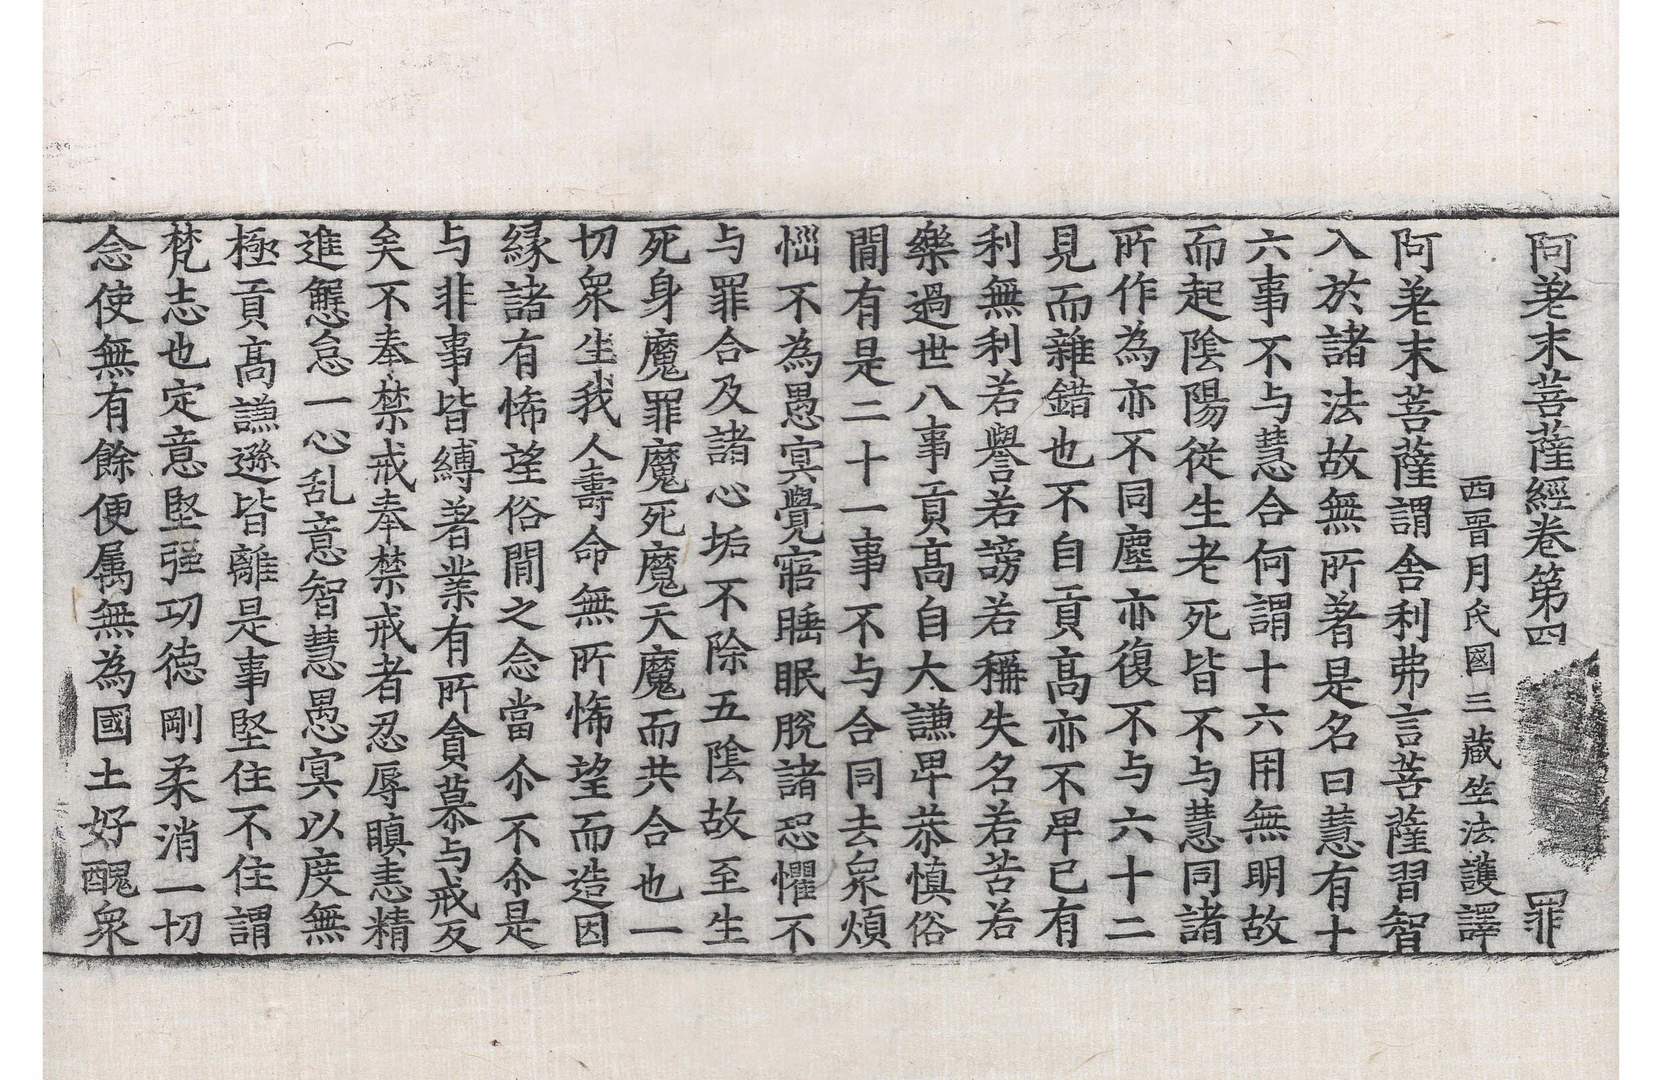 阿差末菩薩經卷第四 罪
西晉月氏國三藏竺法護譯
阿差末菩薩謂舍利弗言菩薩習智
入於諸法故無所著是名曰慧有十
六事不与慧合何謂十六用無明故
而起陰陽從生老死皆不与慧同諸
所作為亦不同塵亦復不与六十二
見而雜錯也不自貢高亦不卑已有
利無利若譽若謗若稱失名若苦若
樂過世八事貢高自大謙卑恭慎俗
間有是二十一事不与合同去衆煩
惱不為愚冥覺寤睡眠脫諸恐懼不
与罪合及諸心垢不除五陰故至生
死身魔罪魔死魔天魔而共合也一
切衆生我人壽命無所悕望而造因
緣諸有悕望俗間之念當尒不尒是
与非事皆縛著業有所貪慕与戒反
矣不奉禁戒奉禁戒者忍辱瞋恚精
進懈怠一心乱意智慧愚冥以度無
極貢高謙遜皆離是事堅住不住謂
梵志也定意堅强功徳剛柔消一切
念使無有餘便属無為國土好醜衆